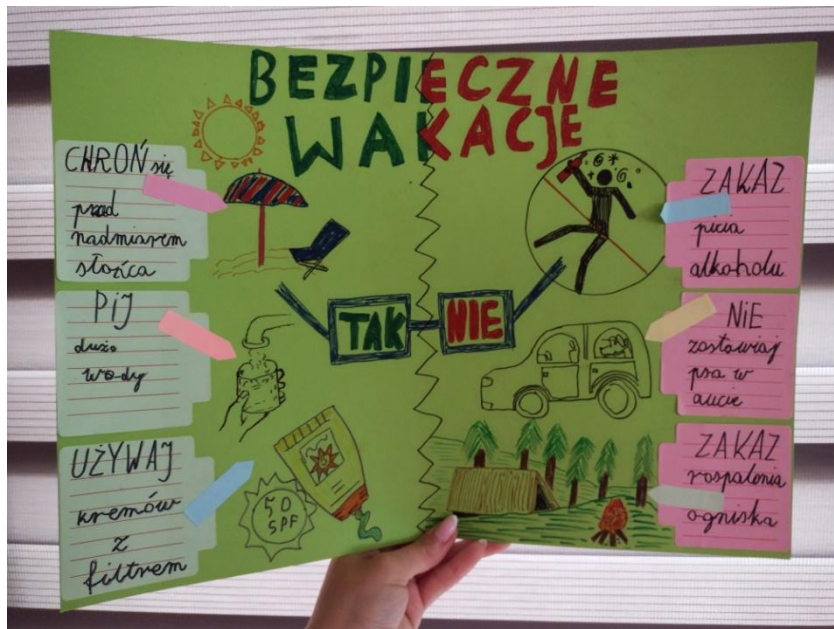 BEZPIECZNE
WAKACJE
CHROŃ się
przed
nadmiarem
słońca
PIJ
dużo
wody
UŻYWAJ
kremów
z
filtrem
50
SPF
TAK
NIE
ZAKAZ
picia
alkoholu
NiE
zostawiaj
psa w
aucie
ZAKAZ
rozpalenia
ogniska